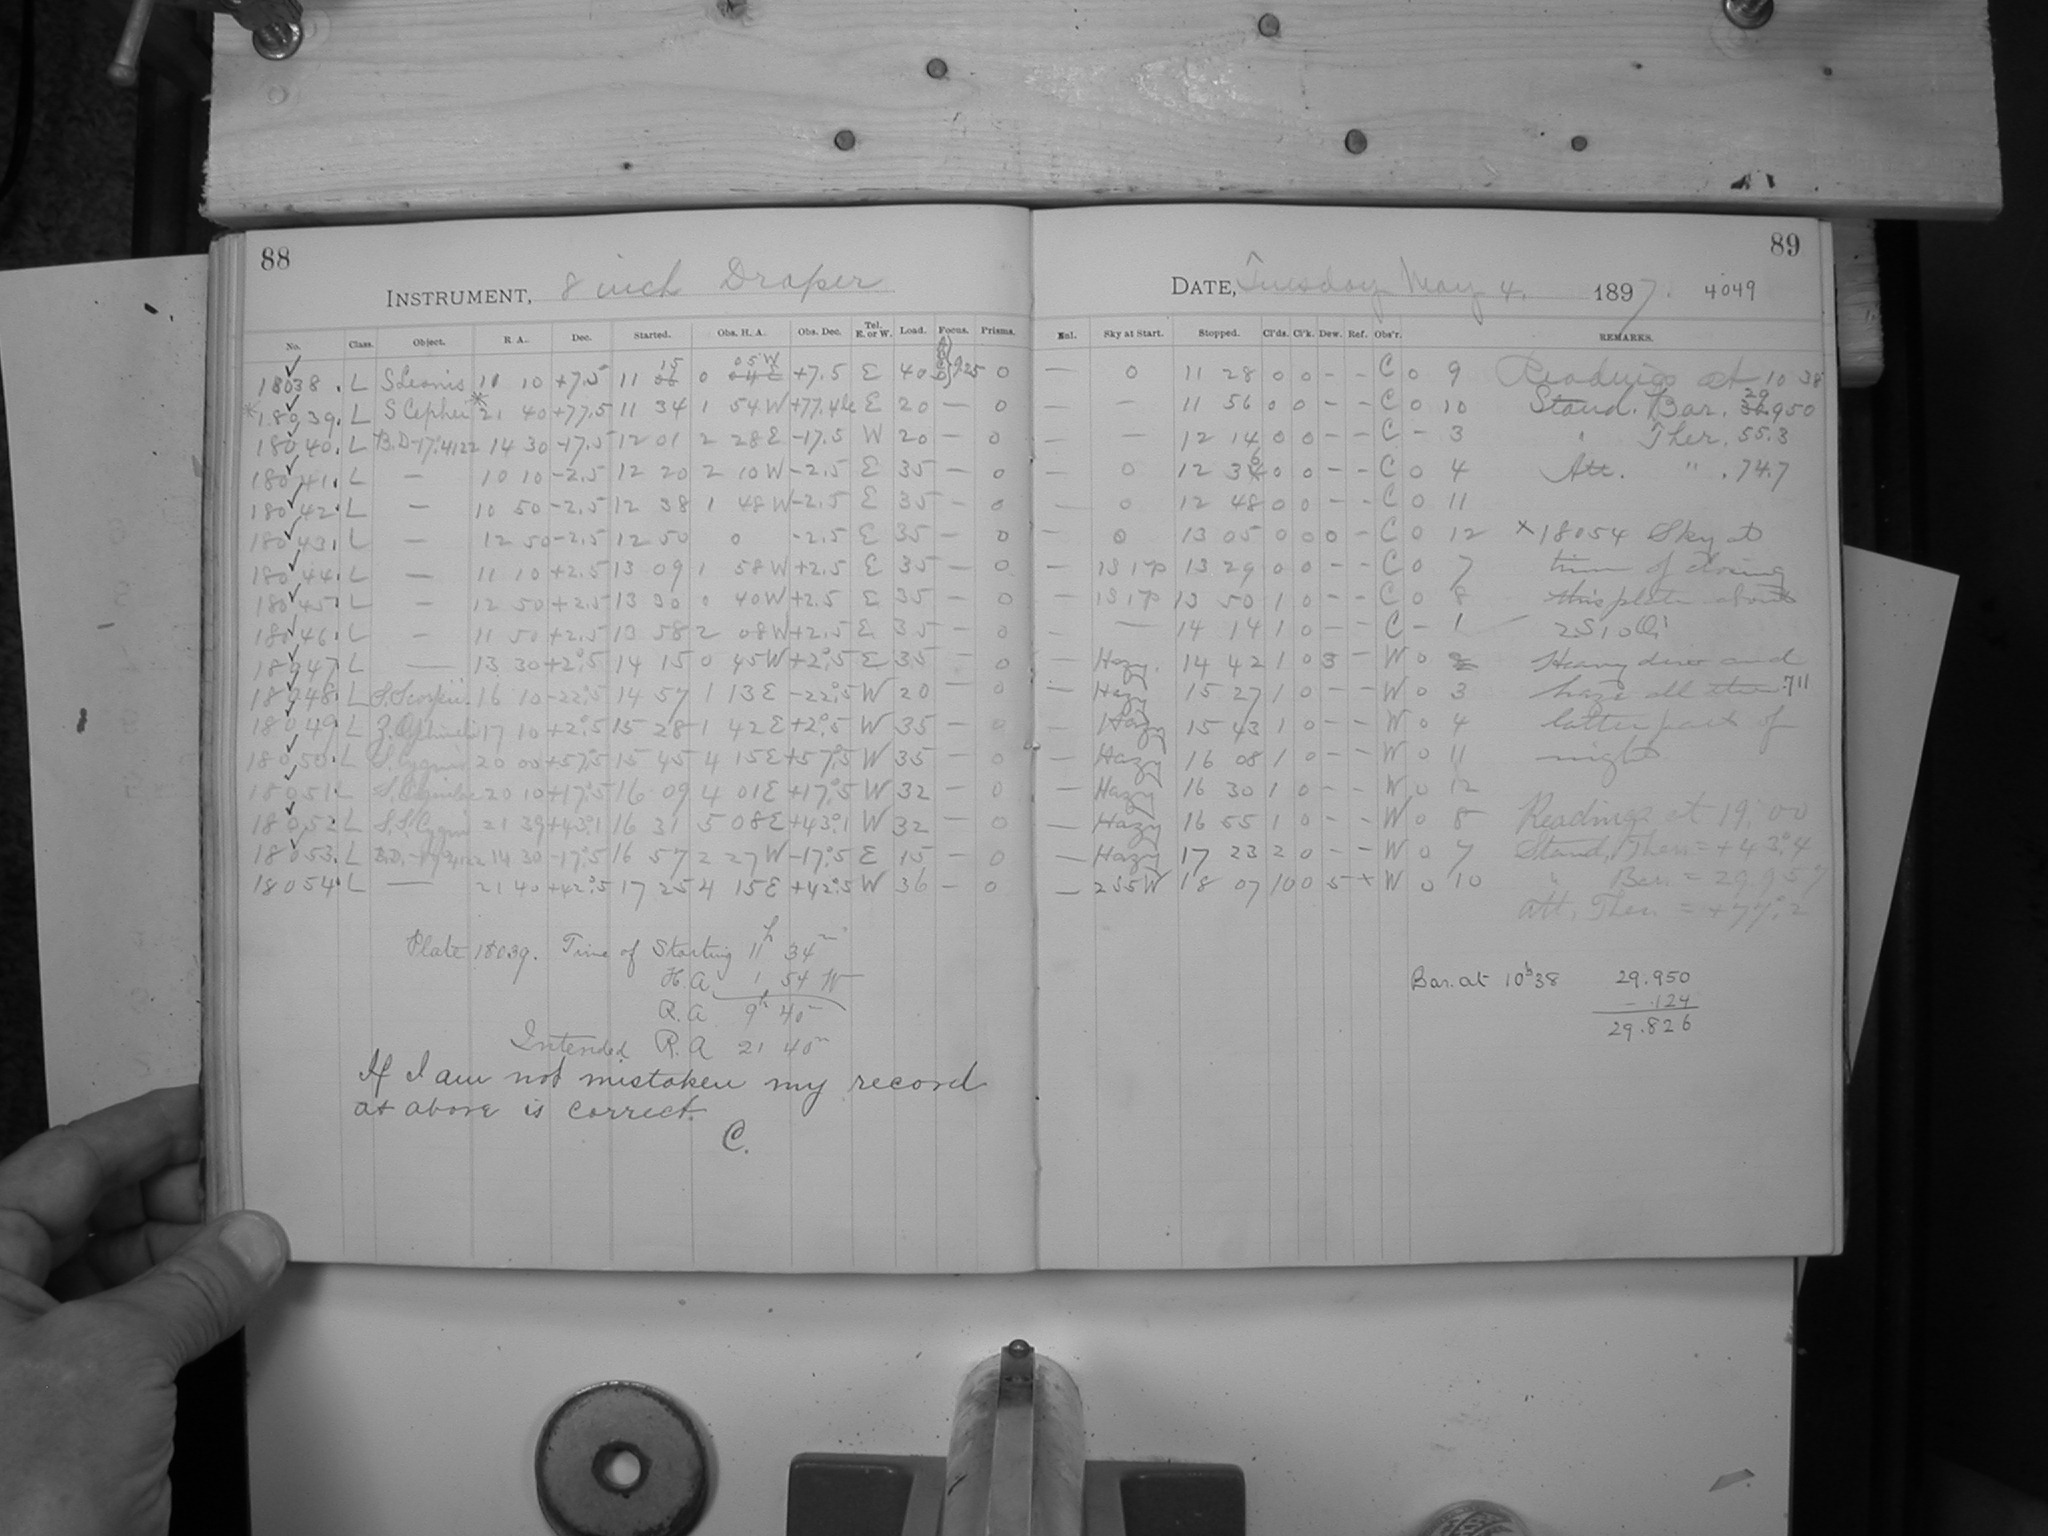 88
INSTRUMENT, 8 inch Draper
No. Class. Object. R. A. Dec. Started. Obs. H. A. Obs. Dec. Tel. E. or W. Load. Focus. Prisms.
18038. L S Leonis 11 10 +7.5 11 15 0 05 W +7.5 E 40 9.25 0
*18039. L S Cephei *21 40 +77.5 11 34 1 54 W +77.4 E 20 — 0
18040. L B.D-17°.4122 14 30 -17.5 12 01 2 28 E -17.5 W 20 — 0
18041. L — 10 10 -2.5 12 20 2 10 W -2.5 E 35 — 0
18042. L — 10 50 -2.5 12 38 1 48 W -2.5 E 35 — 0
18043. L — 12 50 -2.5 12 50 0 -2.5 E 35 — 0
18044. L — 11 10 +2.5 13 09 1 58 W +2.5 E 35 — 0
18045. L — 12 50 +2.5 13 30 0 40 W +2.5 E 35 — 0
18046. L — 11 50 +2.5 13 58 2 08 W +2.5 E 35 — 0
18047 L — 13 30 +2°.5 14 15 0 45 W +2°.5 E 35 — 0
18048. L S. Scorpii. 16 10 -22°.5 14 57 1 13 E -22°.5 W 20 — 0
18049. L Z. Ophiuchi 17 10 +2°.5 15 28 1 42 E +2°.5 W 35 — 0
18050. L S. Cygni 20 00 +57°.5 15 45 4 15 E +57°.5 W 35 — 0
18051 L 20 10 +17°.5 16 09 4 01 E +17°.5 W 32 — 0
18052 L S.S. Cygni 21 39 +43°.1 16 31 5 08 E +43°.1 W 32 — 0
18053. L B.D. -17°.4122 14 30 -17°.5 16 57 2 27 W -17°.5 E 15 — 0
18054. L — 21 40 +42°.5 17 25 4 15 E +42°.5 W 36 — 0
Plate 18039. Time of Starting 11h 34m
H.A 1 54 W
R.A 9h 40m
Intended R.A 21 40m
If I am not mistaken my record
as above is correct.
C.
89
DATE, Tuesday May 4, 1897. 4049
Enl. Sky at Start. Stopped. Cl'ds. Cl'k. Dew. Ref. Obs'r. REMARKS.
— 0 11 28 0 0 - - C 0 9 Readings at 10 38
— — 11 56 0 0 - - C 0 10 Stand. Bar. 29.950
— — 12 14 0 0 - - C - 3 " Ther. 55.3
— 0 12 36 0 0 - - C 0 4 Att. " . 74.7
— 0 12 48 0 0 - - C 0 11
— 0 13 05 0 0 0 - C 0 12 ×18054 Sky at
— 1S1P 13 29 0 0 - - C 0 7 time of closing
— 1S1P 13 50 1 0 - - C 0 8 this plate about
— — 14 14 1 0 - - C - 1
— Hazy. 14 42 1 0 3 - W 0 2 Heavy dew and
— Hazy 15 27 1 0 - - W 0 3 haze all the .711
— Hazy 15 43 1 0 - - W 0 4 latter part of
— Hazy 16 08 1 0 - - W 0 11 night
— Hazy 16 30 1 0 - - W 0 12
— Hazy 16 55 1 0 - - W 0 8 Readings at 19:00
— Hazy 17 23 2 0 - - W 0 7 Stand. Ther. = +43°.4
— 2S5W 18 07 10 0 5 × W 0 10 " Bar. = 29.957
Att. Ther. = +77°.2
Bar. at 10h38 29.950
- .124
29.826